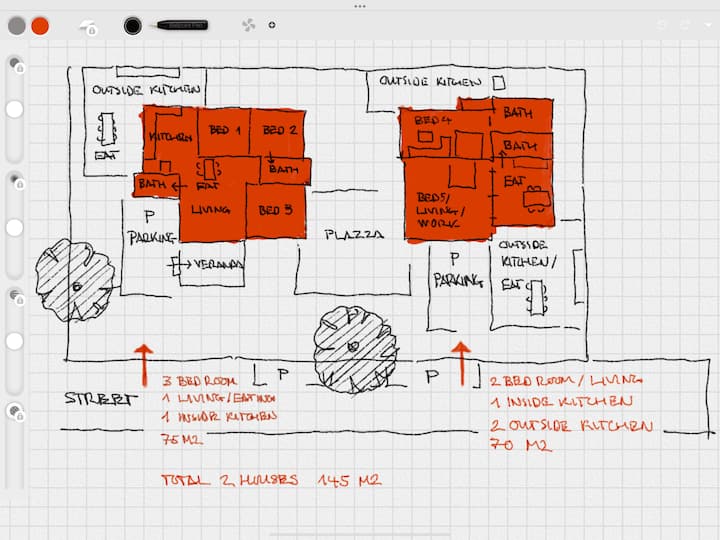 OUTSIDE KITCHEN
EAT
KITCHEN
BED 1
BED 2
BATH
EAT
BATH
LIVING
BED 3
P
PARKING
VERANDA
PLAZZA
OUTSIDE KITCHEN
BED 4
BATH
BATH
EAT
BEDS/
LIVING/
WORK
P
PARKING
OUTSIDE
KITCHEN/
EAT
STREET
P
P
3 BEDROOM
1 LIVING/EATING
1 INSIDE KITCHEN
75 M2
2 BEDROOM/LIVING
1 INSIDE KITCHEN
2 OUTSIDE KITCHEN
70 M2
TOTAL 2 HOUSES 145 M2